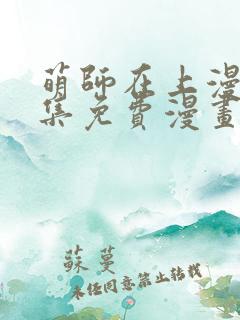 萌師在上漫
集免費漫畫
蘇蔓
未经同意禁止转载